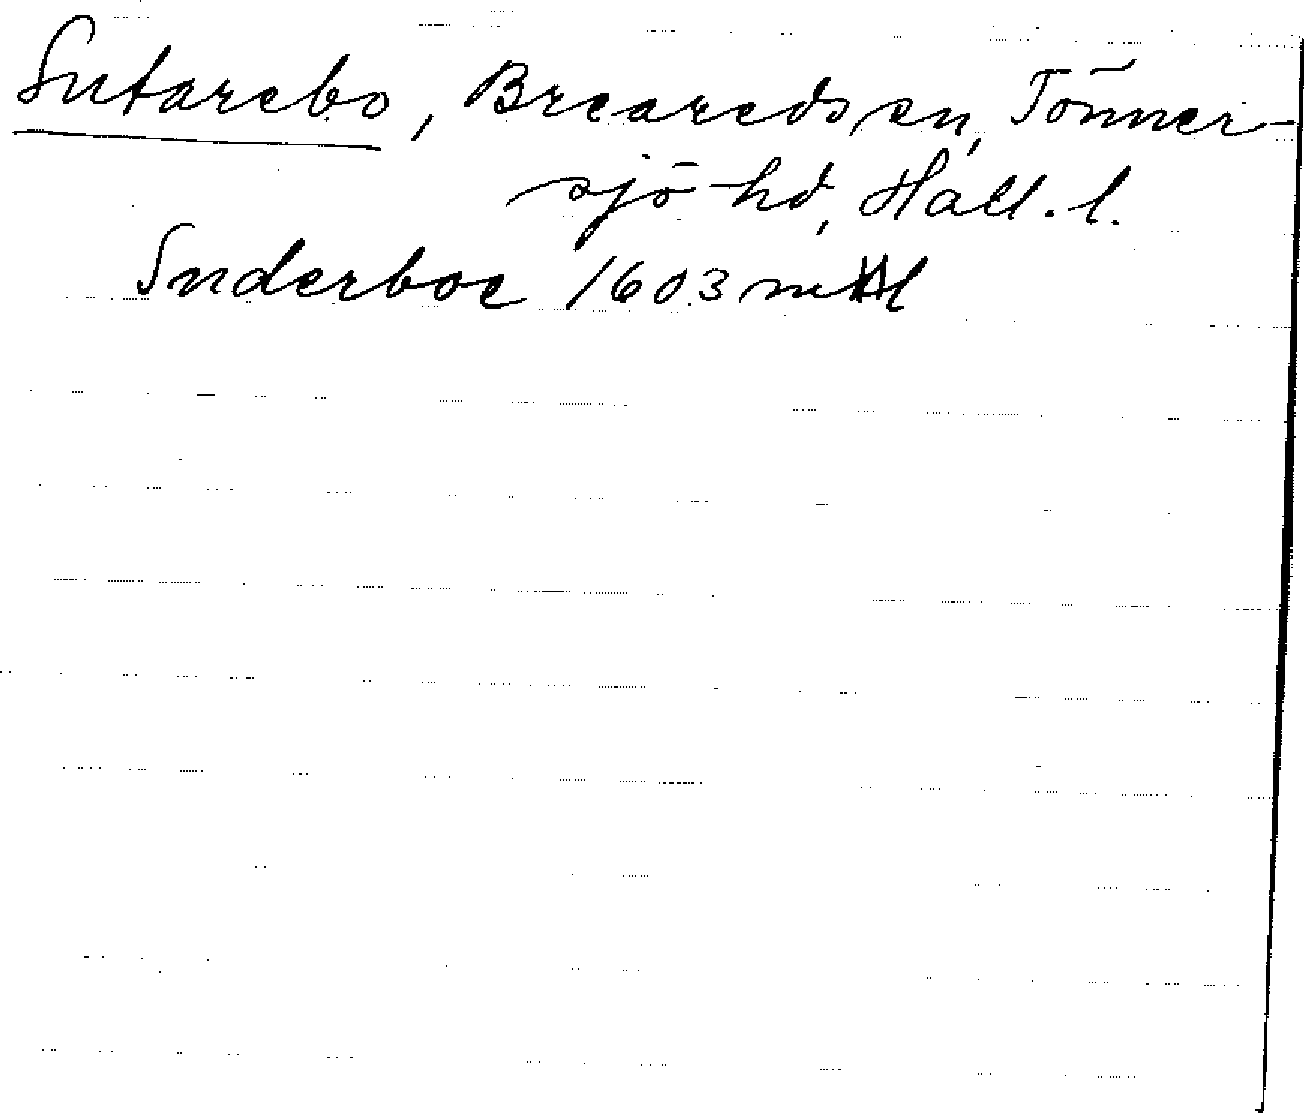 Sutarebo, Breareds sn, Tönner-
sjö hd, Hall. l.
Suderboe 1603 mtl